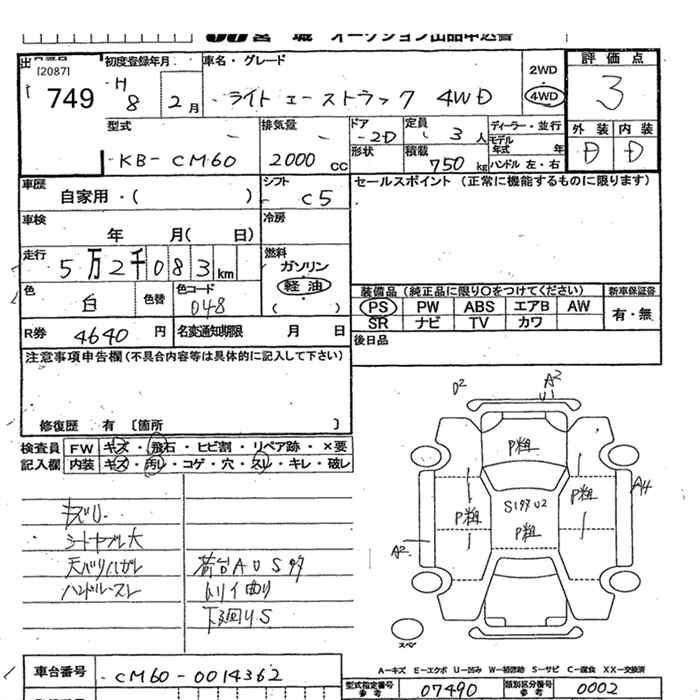 宮城 オークション出品申込書
[2087]
749
初度登録年月
H 8 2月
車名・グレード
ライトエーストラック 4WD
2WD
4WD
評価点
3
外装 内装
D D
型式
KB-CM60
排気量
2000 CC
ドア
2D
形状
定員
3人
積載
750 kg
ディーラー・並行
モデル年式 年
ハンドル 左・右
車歴
自家用・( )
シフト
C5
セールスポイント (正常に機能するものに限ります)
車検
年 月( 日)
冷房
走行
5万2千083km
燃料
ガソリン
軽油
( )
色
白
色替
色コード
048
装備品 (純正品に限り○をつけてください)
PS PW ABS エアB AW
SR ナビ TV カワ
新車保証書
有・無
R券
4640 円
名変通知期限 月 日
後日品
注意事項申告欄(不具合内容等は具体的に記入して下さい)
修復歴 有 〔箇所 〕
検査員記入欄
FW キズ・飛石・ヒビ割・リペア跡・×要
内装 キズ・汚レ・コゲ・穴・スレ・キレ・破レ
キズU
シートヤブレ大
天バリハガレ
ハンドルスレ
荷台AUSサ
トリイ曲り
下廻りS
D2
A2
U1
P粗
P粗
P粗
P粗
A4
A2
スペア
A-キズ E-エクボ U-凹み W-補修跡 S-サビ C-腐食 XX-交換済
車台番号
CM60-0014362
型式指定番号
参考
07490
類別区分番号
参考
0002